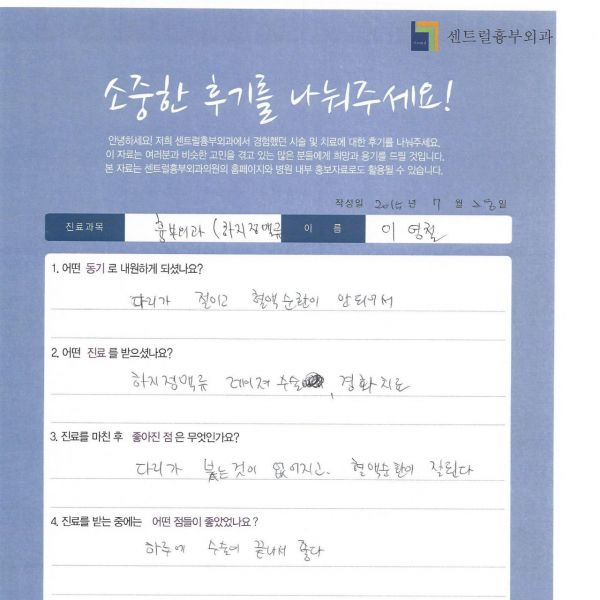 센트럴흉부외과
소중한 후기를 나눠주세요!
안녕하세요! 저희 센트럴흉부외과에서 경험했던 시술 및 치료에 대한 후기를 나눠주세요.
이 자료는 여러분과 비슷한 고민을 겪고 있는 많은 분들에게 희망과 용기를 드릴 것입니다.
본 자료는 센트럴흉부외과의원의 홈페이지와 병원 내부 홍보자료로도 활용될 수 있습니다.
작성일 2015 년 7 월 28 일
진료과목 흉부외과 (하지정맥류 이 름 이 영철
1. 어떤 동기 로 내원하게 되셨나요?
다리가 절이고 혈액순환이 안되어서
2. 어떤 진료 를 받으셨나요?
하지정맥류 레이져 수술, 경화치료
3. 진료를 마친 후 좋아진 점 은 무엇인가요?
다리가 붓는것이 없어지고. 혈액순환이 잘된다
4. 진료를 받는 중에는 어떤 점들이 좋았었나요?
하루에 수술이 끝나서 좋다